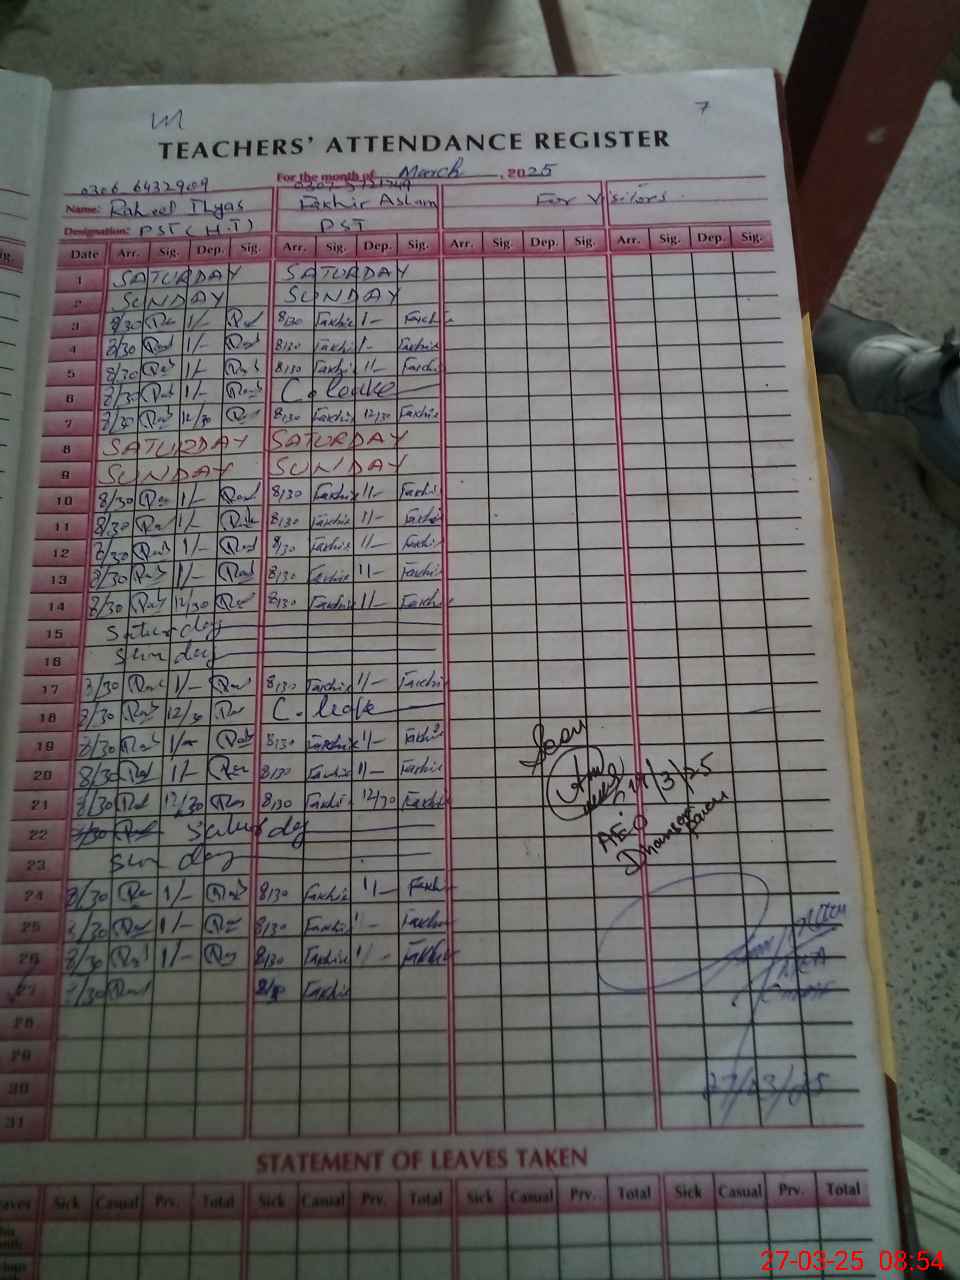 7
TEACHERS' ATTENDANCE REGISTER
For the month of March, 2025
0306 6432909
Name: Raheel Ilyas Fakhir Aslam For Visitors
Designation: PST (H.T) PST
Date Arr. Sig. Dep. Sig. Arr. Sig. Dep. Sig. Arr. Sig. Dep. Sig. Arr. Sig. Dep. Sig.
1 SATURDAY SATURDAY
2 SUNDAY SUNDAY
3 8/30 1/- 8/30 Fakhir 1/- Fakhir
4 8/30 1/- 8/30 Fakhir 1/- Fakhir
5 8/30 1/- 8/30 Fakhir 1/- Fakhir
6 8/30 1/- C. leave
7 8/30 12/30 8/30 Fakhir 12/30 Fakhir
8 SATURDAY SATURDAY
9 SUNDAY SUNDAY
10 8/30 1/- 8/30 Fakhir 1/- Fakhir
11 8/30 1/- 8/30 Fakhir 1/- Fakhir
12 8/30 1/- 8/30 Fakhir 1/- Fakhir
13 8/30 1/- 8/30 Fakhir 1/- Fakhir
14 8/30 12/30 8/30 Fakhir 1/- Fakhir
15 Saturday
16 Sunday
17 8/30 1/- 8/30 Fakhir 1/- Fakhir
18 8/30 12/30 C. leave
19 8/30 1/- 8/30 Fakhir 1/- Fakhir
20 8/30 1/- 8/30 Fakhir 1/- Fakhir
21 8/30 12/30 8/30 Fakhir 12/30 Fakhir
22 8/30 Saturday
23 Sunday
24 8/30 1/- 8/30 Fakhir 1/- Fakhir
25 8/30 1/- 8/30 Fakhir 1/- Fakhir
26 8/30 1/- 8/30 Fakhir 1/- Fakhir
27 8/30 Fakhir
28
29
30
31
Seen
19/3/25
AEO
27/03/25
STATEMENT OF LEAVES TAKEN
Sick Casual Prv. Total Sick Casual Prv. Total Sick Casual Prv. Total Sick Casual Prv. Total
27-03-25 08:54